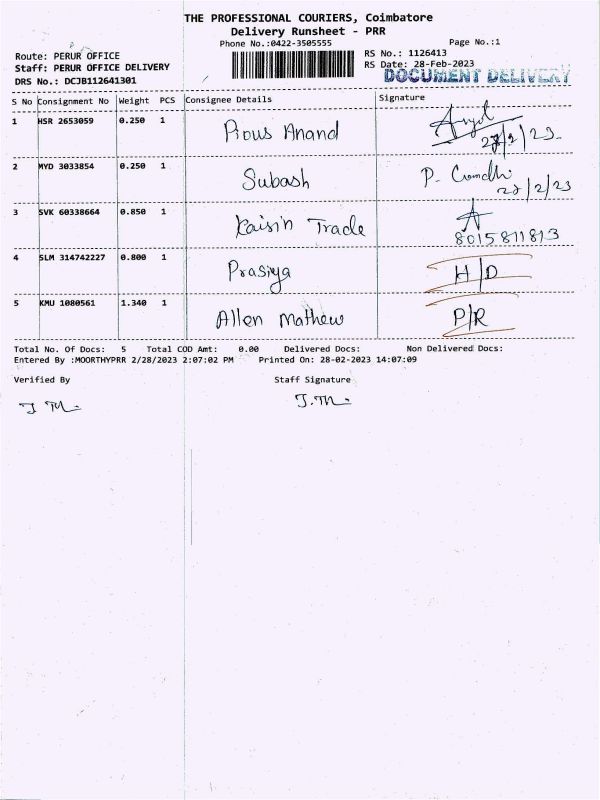 THE PROFESSIONAL COURIERS, Coimbatore
Delivery Runsheet - PRR
Phone No.:0422-3505555 Page No.:1
Route: PERUR OFFICE RS No.: 1126413
Staff: PERUR OFFICE DELIVERY RS Date: 28-Feb-2023
DRS No.: DCJB112641301 DOCUMENT DELIVERY
S No Consignment No Weight PCS Consignee Details Signature
1 HSR 2653059 0.250 1 Pious Anand
2 MYD 3033854 0.250 1 Subash P.
27/2/23
3 SVK 60338664 0.850 1 Kaisin Trade
8015811813
4 SLM 314742227 0.800 1 Prasiya H/D
5 KMU 1080561 1.340 1 Allen Mathew P/R
Total No. Of Docs: 5 Total COD Amt: 0.00 Delivered Docs: Non Delivered Docs:
Entered By :MOORTHYPRR 2/28/2023 2:07:02 PM Printed On: 28-02-2023 14:07:09
Verified By Staff Signature
J.M.